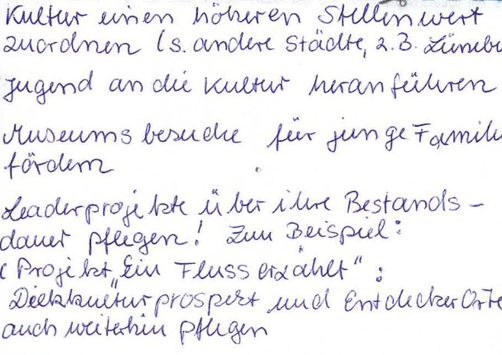 Kultur einen höheren Stellenwert
zuordnen (s. andere Städte, z.B. Lünebu
Jugend an die Kultur heranführen
Museumsbesuche für junge Famili
fördern
Leaderprojekte über ihre Bestands-
dauer pflegen! Zum Beispiel:
(Projekt „Ein Fluss erzählt":
prospekt und EntdeckerOrte
auch weiterhin pflegen